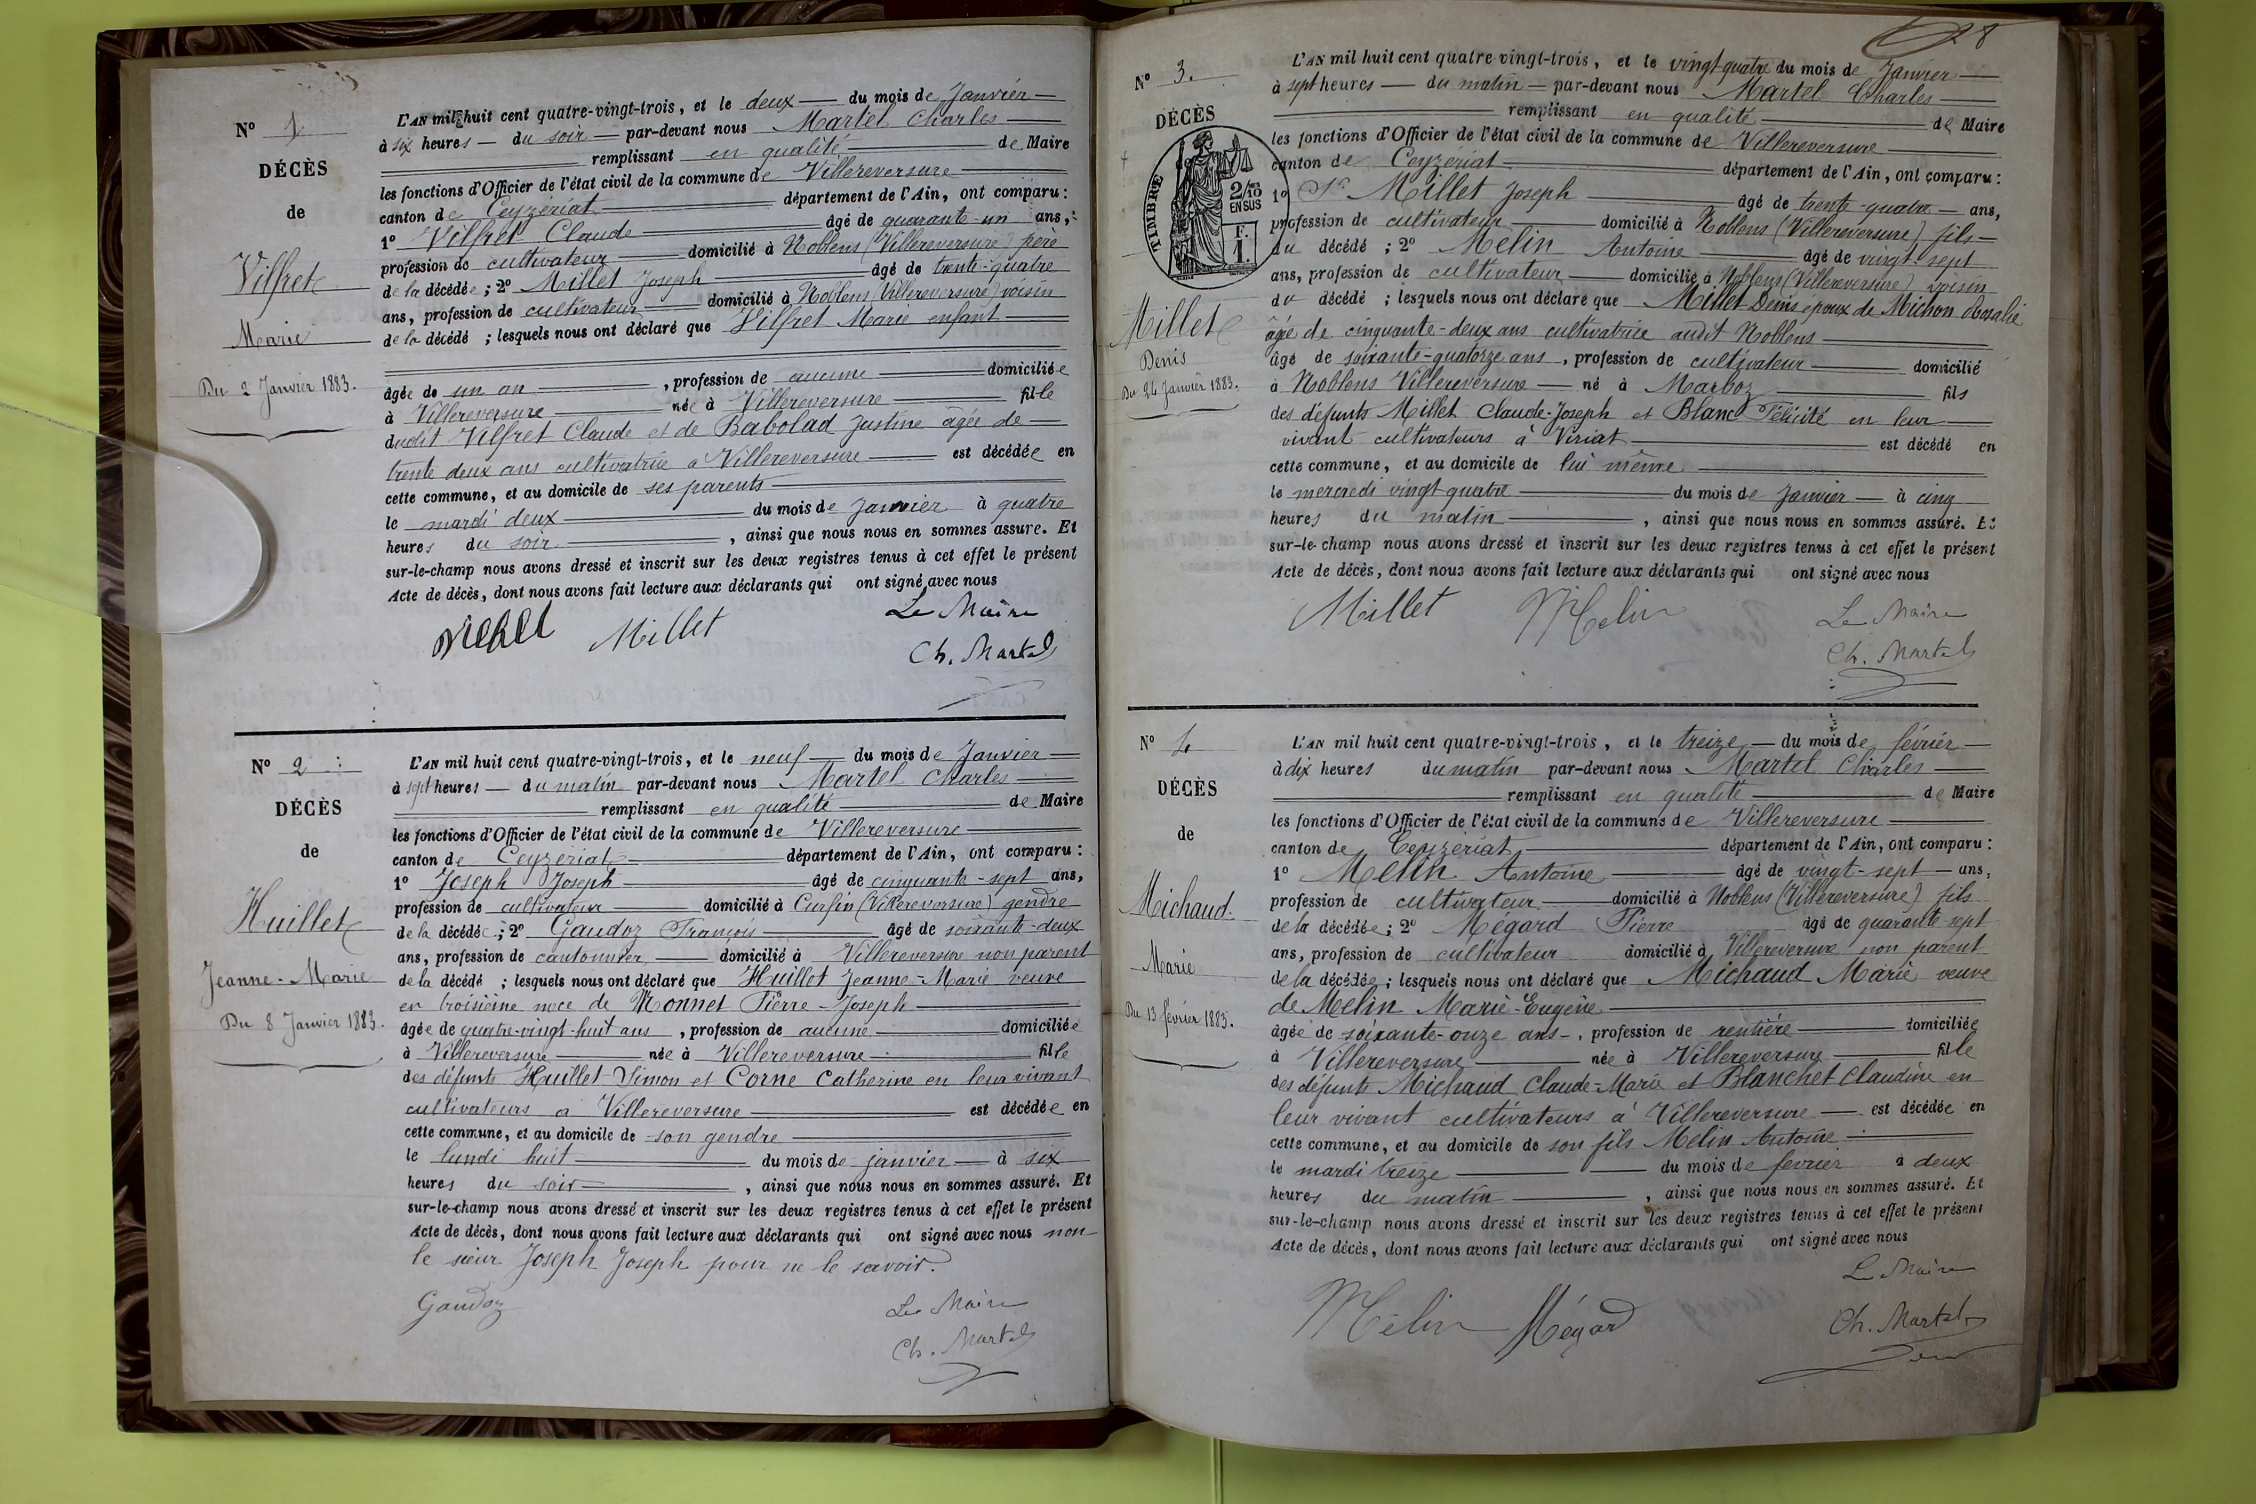 Nº 1.
DÉCÈS
de
Vilfret
Marie
Du 2 Janvier 1883.
L'AN mil huit cent quatre-vingt-trois, et le deux du mois de Janvier
à six heures du soir par-devant nous Martel Charles
remplissant en qualité de Maire
les fonctions d'Officier de l'état civil de la commune de Villereversure
canton de Ceyzériat département de l'Ain, ont comparu :
1º Vilfret Claude âgé de quarante-un ans,
profession de cultivateur domicilié à Noblens (Villereversure) père
de la décédée ; 2º Millet Joseph âgé de trente-quatre
ans, profession de cultivateur domicilié à Noblens (Villereversure) voisin
de la décédé ; lesquels nous ont déclaré que Vilfret Marie enfant
âgée de un an, profession de aucune domiciliée
à Villereversure née à Villereversure fille
dudit Vilfret Claude et de Babolad Justine âgée de
trente deux ans cultivatrice à Villereversure est décédée en
cette commune, et au domicile de ses parents
le mardi deux du mois de janvier à quatre
heures du soir, ainsi que nous nous en sommes assuré. Et
sur-le-champ nous avons dressé et inscrit sur les deux registres tenus à cet effet le présent
Acte de décès, dont nous avons fait lecture aux déclarants qui ont signé avec nous
Millet
Le Maire
Ch. Martel
Nº 2
DÉCÈS
de
Huillet
Jeanne-Marie
Du 8 Janvier 1883.
L'AN mil huit cent quatre-vingt-trois, et le neuf du mois de Janvier
à sept heures du matin par-devant nous Martel Charles
remplissant en qualité de Maire
les fonctions d'Officier de l'état civil de la commune de Villereversure
canton de Ceyzériat département de l'Ain, ont comparu :
1º Joseph Joseph âgé de cinquante-sept ans,
profession de cultivateur domicilié à Curfin (Villereversure) gendre
de la décédée ; 2º Gaudoz François âgé de soixante-deux
ans, profession de cantonnier domicilié à Villereversure non parent
de la décédé ; lesquels nous ont déclaré que Huillet Jeanne-Marie veuve
en troisième noce de Monnet Pierre-Joseph
âgée de quatre-vingt-huit ans, profession de aucune domiciliée
à Villereversure née à Villereversure fille
des défunts Huillet Simon et Corne Catherine en leur vivant
cultivateurs à Villereversure est décédée en
cette commune, et au domicile de son gendre
le lundi huit du mois de janvier à six
heures du soir, ainsi que nous nous en sommes assuré. Et
sur-le-champ nous avons dressé et inscrit sur les deux registres tenus à cet effet le présent
Acte de décès, dont nous avons fait lecture aux déclarants qui ont signé avec nous non
le sieur Joseph Joseph pour ne le savoir.
Gaudoz
Le Maire
Ch. Martel
28
Nº 3.
DÉCÈS
TIMBRE
2/10 EN SUS
F. 1.
Millet
Denis
Du 24 Janvier 1883.
L'AN mil huit cent quatre-vingt-trois, et le vingt quatre du mois de Janvier
à sept heures du matin par-devant nous Martel Charles
remplissant en qualité de Maire
les fonctions d'Officier de l'état civil de la commune de Villereversure
canton de Ceyzériat département de l'Ain, ont comparu :
1º Sr Millet Joseph âgé de trente-quatre ans,
profession de cultivateur domicilié à Noblens (Villereversure) fils
du décédé ; 2º Melin Antoine âgé de vingt-sept
ans, profession de cultivateur domicilié à Noblens (Villereversure) voisin
du décédé ; lesquels nous ont déclaré que Millet Denis époux de Michon Rosalie
âgée de cinquante-deux ans cultivatrice audit Noblens
âgé de soixante-quatorze ans, profession de cultivateur domicilié
à Noblens Villereversure né à Marboz fils
des défunts Millet Claude-Joseph et Blanc Félicité en leur
vivant cultivateurs à Viriat est décédé en
cette commune, et au domicile de lui même
le mercredi vingt quatre du mois de Janvier à cinq
heures du matin, ainsi que nous nous en sommes assuré. Et
sur-le-champ nous avons dressé et inscrit sur les deux registres tenus à cet effet le présent
Acte de décès, dont nous avons fait lecture aux déclarants qui ont signé avec nous
Millet Melin
Le Maire
Ch. Martel
Nº 4
DÉCÈS
de
Michaud
Marie
Du 13 février 1883.
L'AN mil huit cent quatre-vingt-trois, et le treize du mois de février
à dix heures du matin par-devant nous Martel Charles
remplissant en qualité de Maire
les fonctions d'Officier de l'état civil de la commune de Villereversure
canton de Ceyzériat département de l'Ain, ont comparu :
1º Melin Antoine âgé de vingt-sept ans,
profession de cultivateur domicilié à Noblens (Villereversure) fils
de la décédée ; 2º Mégard Pierre âgé de quarante sept
ans, profession de cultivateur domicilié à Villereversure non parent
de la décédée ; lesquels nous ont déclaré que Michaud Marie veuve
de Melin Marie-Eugène
âgée de soixante-onze ans, profession de rentière domiciliée
à Villereversure née à Villereversure fille
des défunts Michaud Claude-Marie et Blanchet Claudine en
leur vivant cultivateurs à Villereversure est décédée en
cette commune, et au domicile de son fils Melin Antoine
le mardi treize du mois de fevrier à deux
heures du matin, ainsi que nous nous en sommes assuré. Et
sur-le-champ nous avons dressé et inscrit sur les deux registres tenus à cet effet le présent
Acte de décès, dont nous avons fait lecture aux déclarants qui ont signé avec nous
Le Maire
Melin Mégard
Ch. Martel